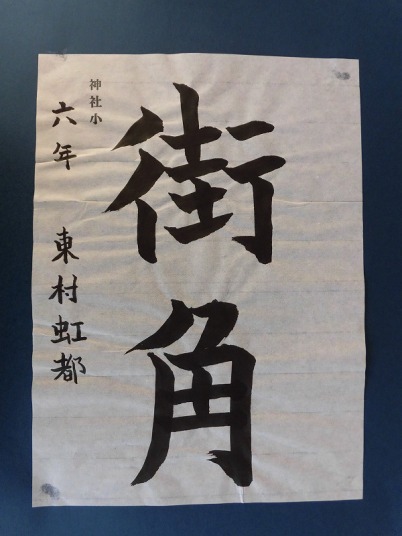 街角
神社小
六年 東村虹都